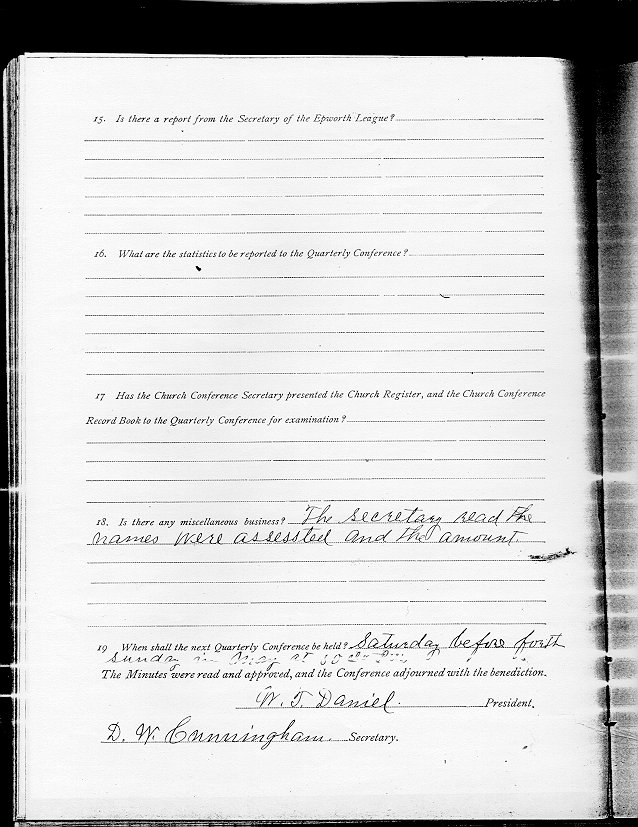 15. Is there a report from the Secretary of the Epworth League?
16. What are the statistics to be reported to the Quarterly Conference?
17 Has the Church Conference Secretary presented the Church Register, and the Church Conference
Record Book to the Quarterly Conference for examination?
18. Is there any miscellaneous business? The secretary read the
names were assessted and the amount.
19 When shall the next Quarterly Conference be held? Saturday before forth
Sunday in May at 10
The Minutes were read and approved, and the Conference adjourned with the benediction.
W. T. Daniel. President.
D. W. Cunningham. Secretary.